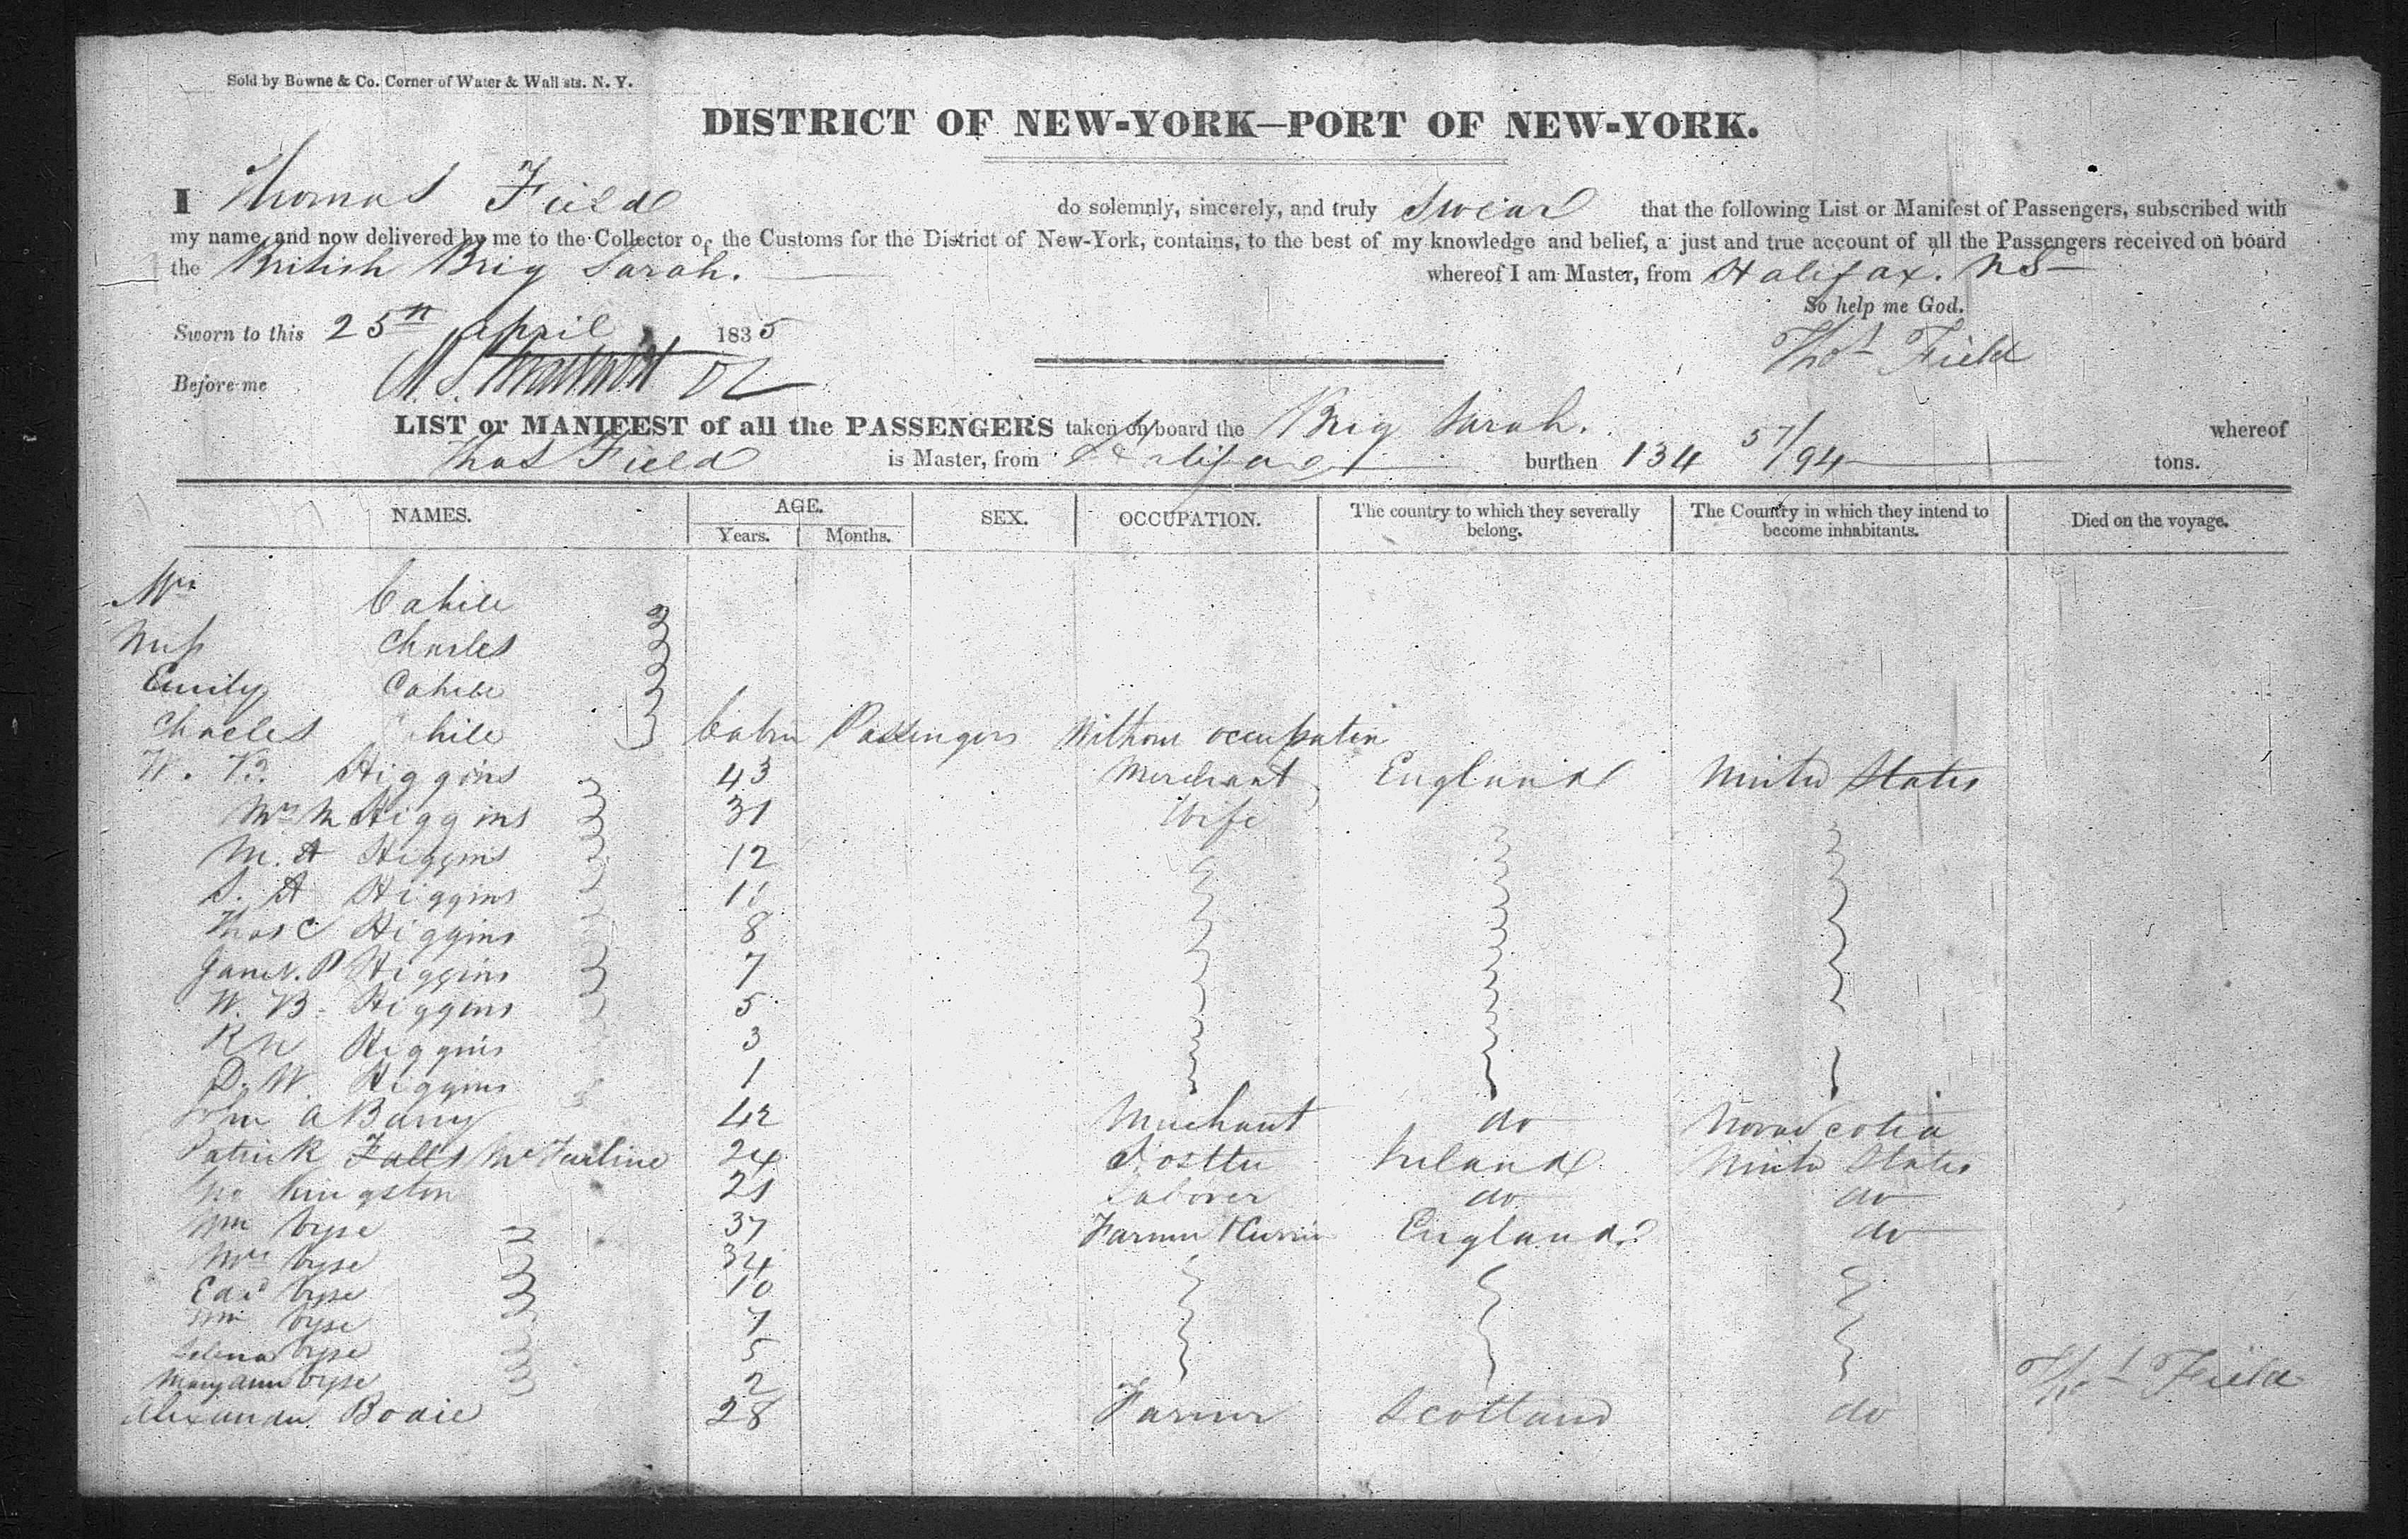 Sold by Bowne & Co. Corner of Water & Wall sts. N. Y.
DISTRICT OF NEW-YORK—PORT OF NEW-YORK.
I Thomas Field do solemnly, sincerely, and truly Swear that the following List or Manifest of Passengers, subscribed with
my name, and now delivered by me to the Collector of the Customs for the District of New-York, contains, to the best of my knowledge and belief, a just and true account of all the Passengers received on board
the British Brig Sarah. whereof I am Master, from Halifax. NS
So help me God.
Sworn to this 25th April 1835
Thos Field
Before me
LIST or MANIFEST of all the PASSENGERS taken on board the Brig Sarah. whereof
Thos Field is Master, from Halifax burthen 134 57/94 tons.
NAMES. AGE. SEX. OCCUPATION. The country to which they severally belong. The Country in which they intend to become inhabitants. Died on the voyage.
Years. Months.
Mrs Cahill
Miss Charles
Emily Cahill
Charles Cahill Cabin Passengers Without occupation
W. B. Higgins 43 Merchant England United States
Mrs M Higgins 31 Wife
M. A Higgins 12
S. A Higgins
Thos C Higgins 8
James. P Higgins 7
W. B. Higgins 5
R N Higgins 3
D. W. Higgins 1
John A Barry 42 Merchant do Nova Scotia
Patrick Falls McFarline 24 Ireland United States
Kingston 21 Laborer do do
Wm Vyse 37 Farmer England do
Mrs Vyse 34
Edwd Vyse 10
Wm Vyse 7
Selena Vyse 5
Mary Ann Vyse 2
Thos Field
Alexander Bodie 28 Farmer Scotland do